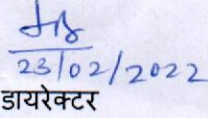 23/02/2022
डायरेक्टर